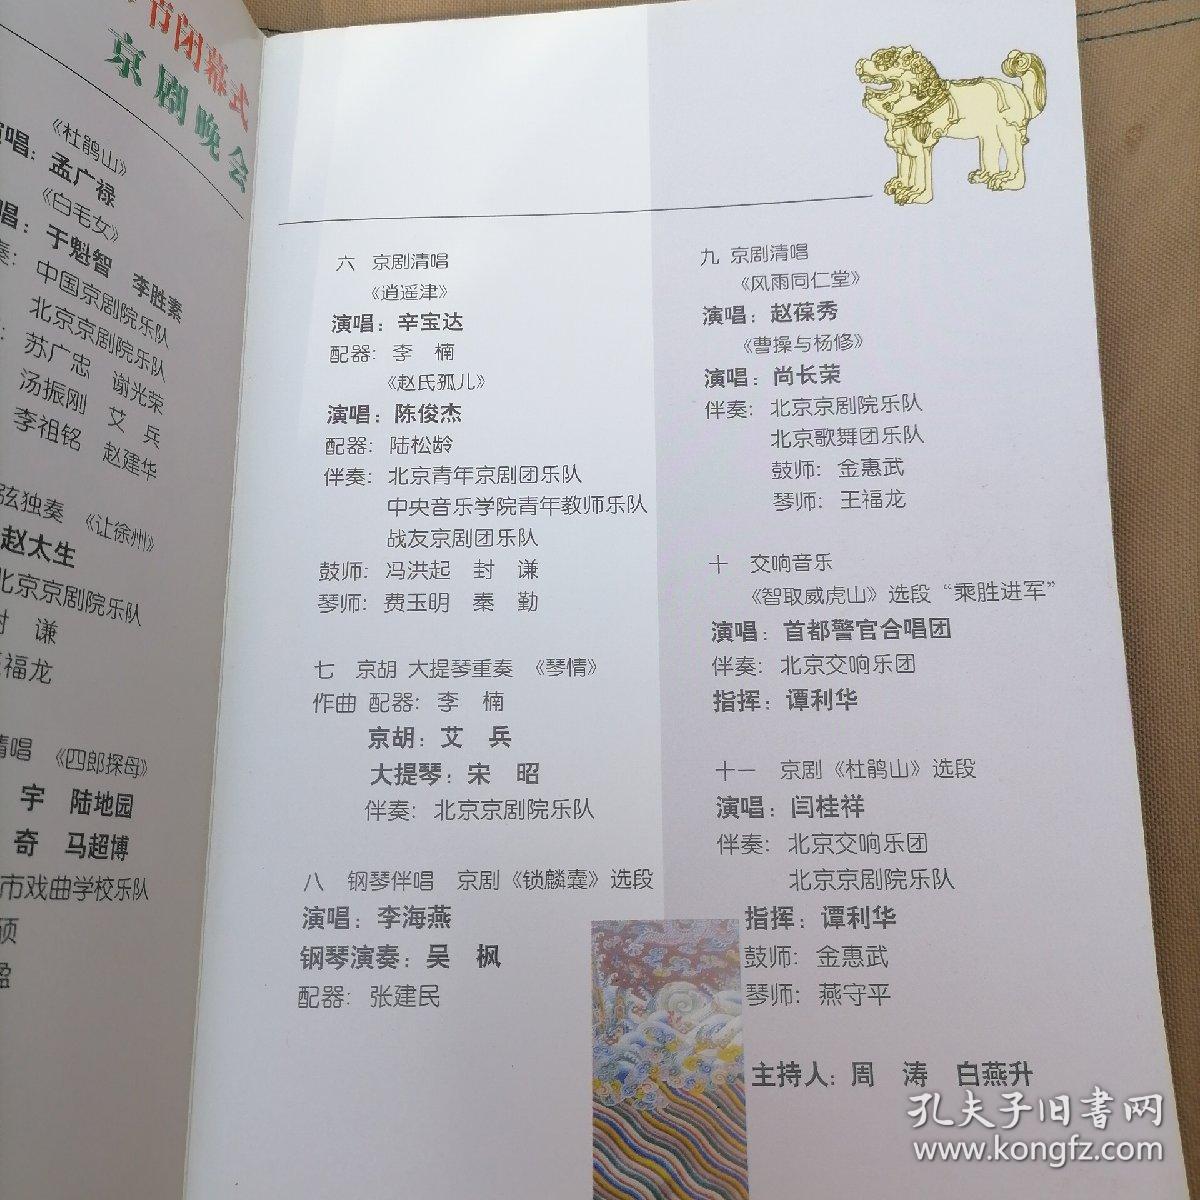 节闭幕式
京剧晚会
《杜鹃山》
演唱：孟广禄
《白毛女》
唱：于魁智 李胜素
奏：中国京剧院乐队
北京京剧院乐队
：苏广忠 谢光荣
汤振刚 艾 兵
李祖铭 赵建华
弦独奏 《让徐州》
赵太生
北京京剧院乐队
封 谦
王福龙
清唱 《四郎探母》
宇 陆地园
奇 马超博
市戏曲学校乐队
硕
六 京剧清唱
《逍遥津》
演唱：辛宝达
配器：李 楠
《赵氏孤儿》
演唱：陈俊杰
配器：陆松龄
伴奏：北京青年京剧团乐队
中央音乐学院青年教师乐队
战友京剧团乐队
鼓师：冯洪起 封 谦
琴师：费玉明 秦 勤
七 京胡 大提琴重奏 《琴情》
作曲 配器：李 楠
京胡：艾 兵
大提琴：宋 昭
伴奏：北京京剧院乐队
八 钢琴伴唱 京剧《锁麟囊》选段
演唱：李海燕
钢琴演奏：吴 枫
配器：张建民
九 京剧清唱
《风雨同仁堂》
演唱：赵葆秀
《曹操与杨修》
演唱：尚长荣
伴奏：北京京剧院乐队
北京歌舞团乐队
鼓师：金惠武
琴师：王福龙
十 交响音乐
《智取威虎山》选段“乘胜进军”
演唱：首都警官合唱团
伴奏：北京交响乐团
指挥：谭利华
十一 京剧《杜鹃山》选段
演唱：闫桂祥
伴奏：北京交响乐团
北京京剧院乐队
指挥：谭利华
鼓师：金惠武
琴师：燕守平
主持人：周 涛 白燕升
孔夫子旧书网
www.kongfz.com